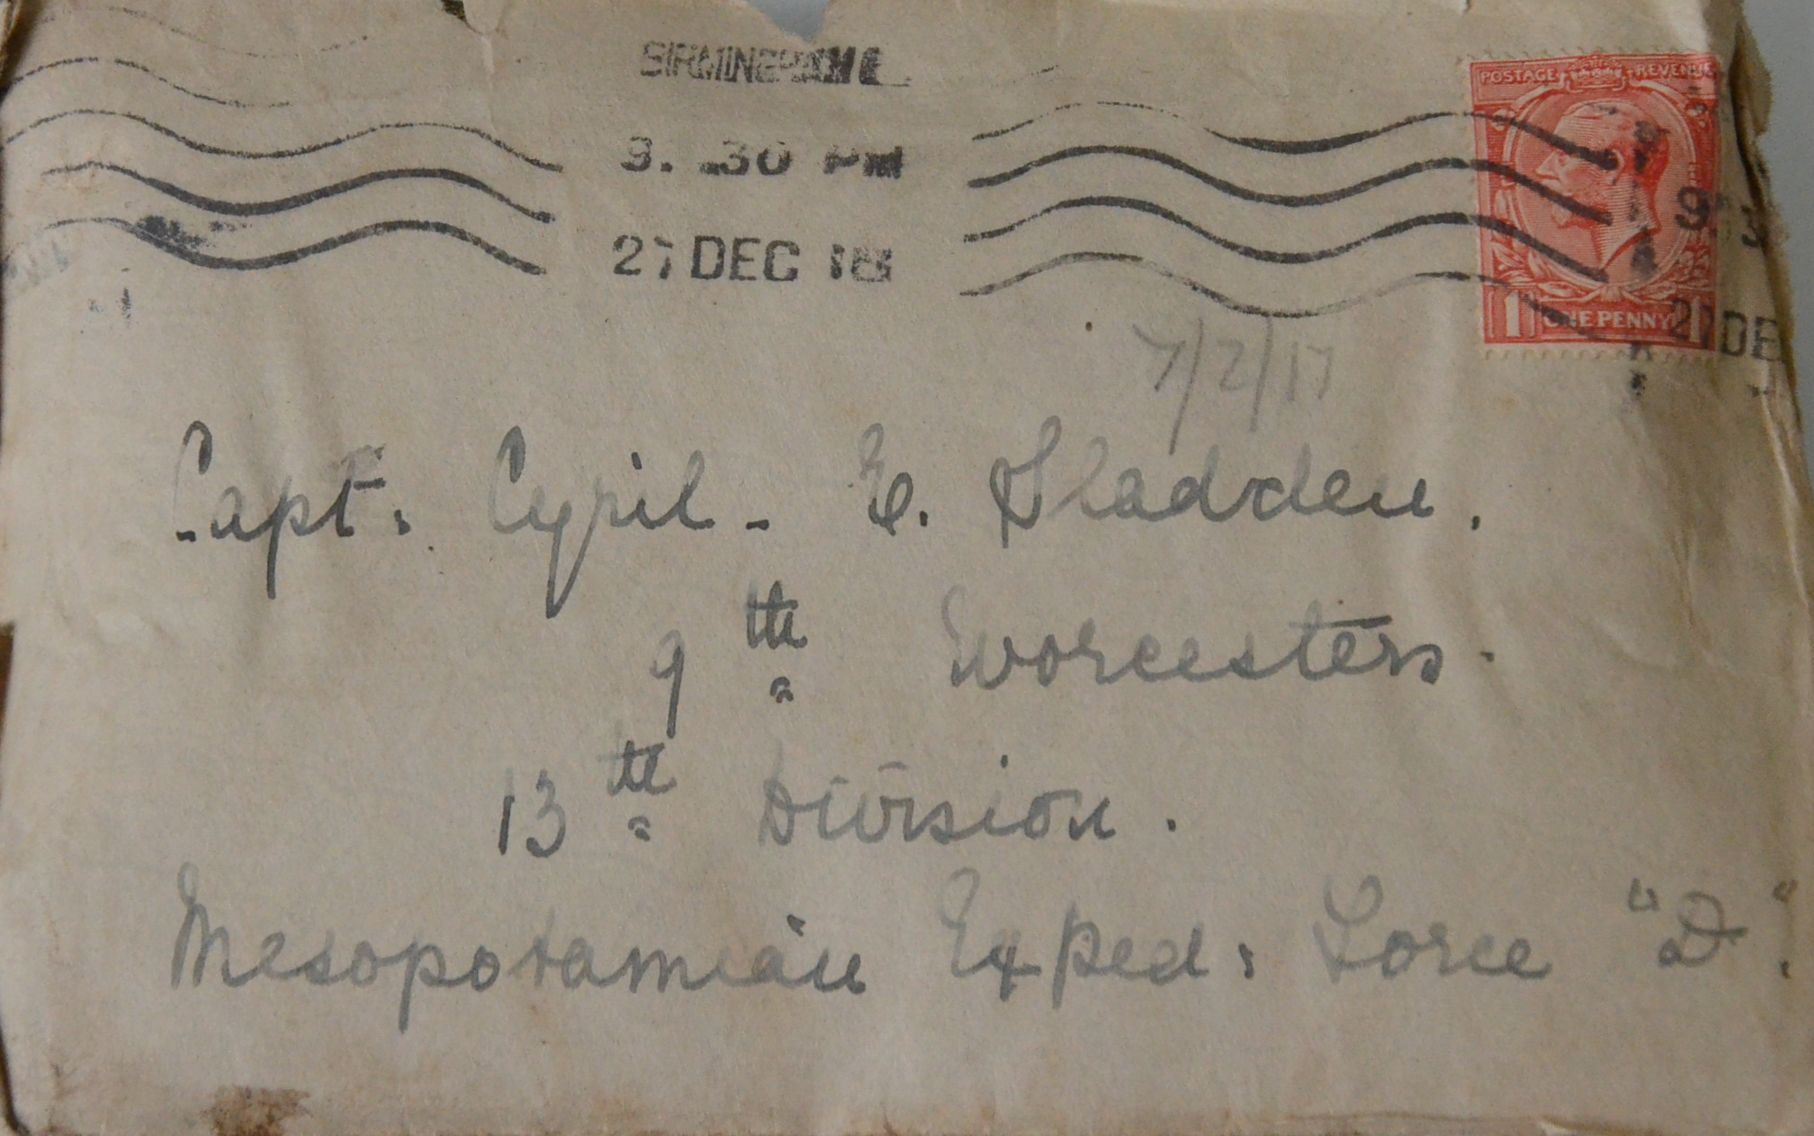 BIRMINGHAM
9. 30 PM
27 DEC 16
POSTAGE REVENUE
1 ONE PENNY
9 3
27 DE
7/2/17
Capt. Cyril - E. Sladden.
9th Worcesters.
13th Division.
Mesopotamian Exped: Force "D".